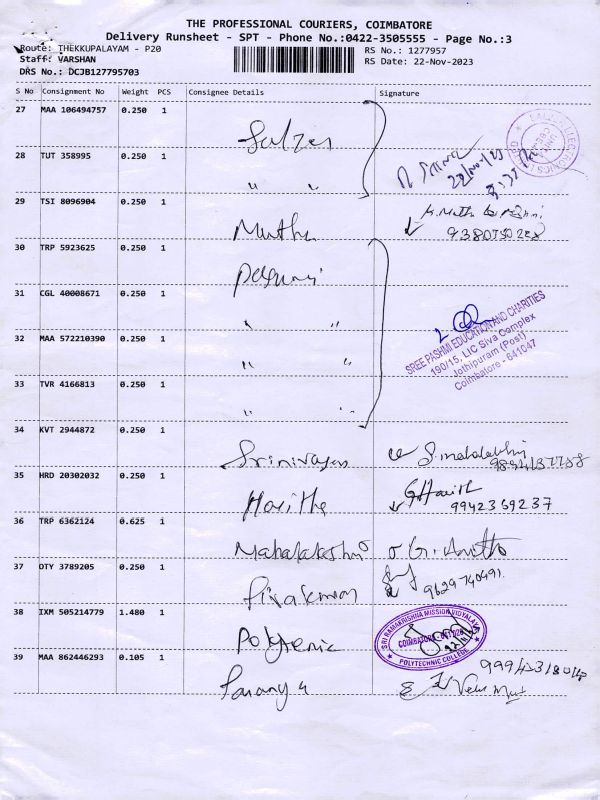 THE PROFESSIONAL COURIERS, COIMBATORE
Delivery Runsheet - SPT - Phone No.:0422-3505555 - Page No.:3
Route: THEKKUPALAYAM - P20
RS No.: 1277957
Staff: VARSHAN
RS Date: 22-Nov-2023
DRS No.: DCJB127795703
S No Consignment No Weight PCS Consignee Details Signature
27 MAA 106494757 0.250 1
Salzer
28 TUT 358995 0.250 1
" "
29 TSI 8096904 0.250 1
Muthu
30 TRP 5923625 0.250 1
31 CGL 40008671 0.250 1
"
32 MAA 572210390 0.250 1
" "
SREE PASHMI EDUCATION AND CHARITIES
190/15, LIC Siva Complex
Jothipuram (Post)
Coimbatore - 641047
33 TVR 4166813 0.250 1
"
34 KVT 2944872 0.250 1
Srinivasan
35 HRD 20302032 0.250 1
Haritha
G Harith
9942369237
36 TRP 6362124 0.625 1
Mahalakshmi
37 DTY 3789205 0.250 1
9629740491.
38 IXM 505214779 1.480 1
Polytecnic
SRI RAMAKRISHNA MISSION VIDYALAYA
POLYTECHNIC COLLEGE
39 MAA 862446293 0.105 1
Saranya